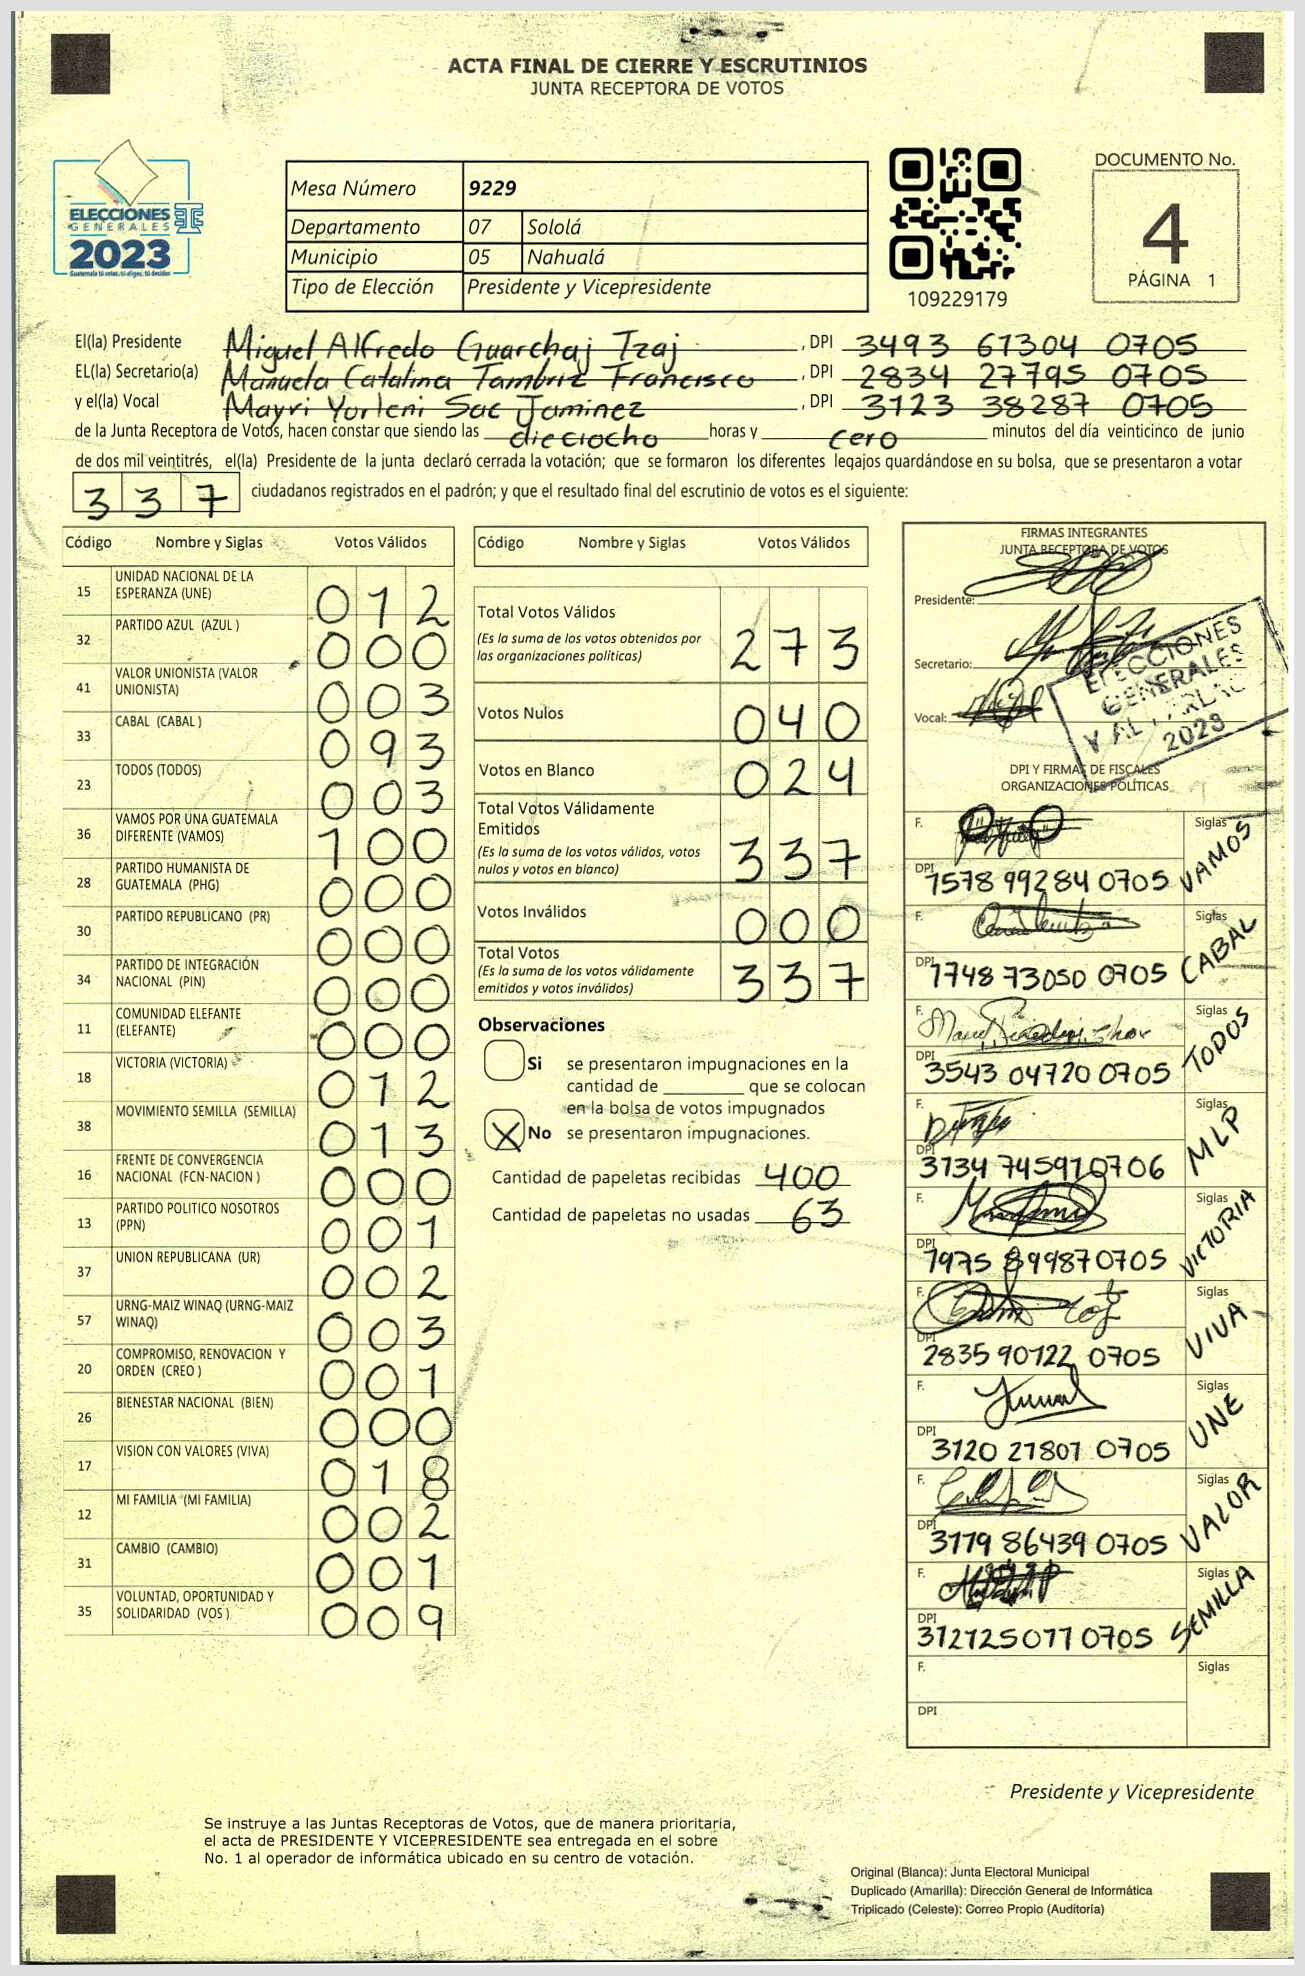 ACTA FINAL DE CIERRE Y ESCRUTINIOS
JUNTA RECEPTORA DE VOTOS
ELECCIONES
GENERALES
2023
Guatemala tú votas, tú eliges, tú decides
Mesa Número 9229
Departamento 07 Sololá
Municipio 05 Nahualá
Tipo de Elección Presidente y Vicepresidente
109229179
DOCUMENTO No.
4
PÁGINA 1
El(la) Presidente Miguel Alfredo Guarchaj Tzaj, DPI 3493 61304 0705
EL(la) Secretario(a) Manuela Catalina Tambriz Francisco, DPI 2834 27795 0705
y el(la) Vocal Mayri Yorleni Sac Jaminez, DPI 3123 38287 0705
de la Junta Receptora de Votos, hacen constar que siendo las dieciocho horas y cero minutos del día veinticinco de junio
de dos mil veintitrés, el(la) Presidente de la junta declaró cerrada la votación; que se formaron los diferentes legajos quardándose en su bolsa, que se presentaron a votar
337 ciudadanos registrados en el padrón; y que el resultado final del escrutinio de votos es el siguiente:
Código Nombre y Siglas Votos Válidos
15 UNIDAD NACIONAL DE LA ESPERANZA (UNE) 012
32 PARTIDO AZUL (AZUL ) 000
41 VALOR UNIONISTA (VALOR UNIONISTA) 003
33 CABAL (CABAL ) 093
23 TODOS (TODOS) 003
36 VAMOS POR UNA GUATEMALA DIFERENTE (VAMOS) 100
28 PARTIDO HUMANISTA DE GUATEMALA (PHG) 000
30 PARTIDO REPUBLICANO (PR) 000
34 PARTIDO DE INTEGRACIÓN NACIONAL (PIN) 000
11 COMUNIDAD ELEFANTE (ELEFANTE) 000
18 VICTORIA (VICTORIA) 012
38 MOVIMIENTO SEMILLA (SEMILLA) 013
16 FRENTE DE CONVERGENCIA NACIONAL (FCN-NACION ) 000
13 PARTIDO POLITICO NOSOTROS (PPN) 001
37 UNION REPUBLICANA (UR) 002
57 URNG-MAIZ WINAQ (URNG-MAIZ WINAQ) 003
20 COMPROMISO, RENOVACION Y ORDEN (CREO ) 001
26 BIENESTAR NACIONAL (BIEN) 000
17 VISION CON VALORES (VIVA) 018
12 MI FAMILIA (MI FAMILIA) 002
31 CAMBIO (CAMBIO) 001
35 VOLUNTAD, OPORTUNIDAD Y SOLIDARIDAD (VOS ) 009
Código Nombre y Siglas Votos Válidos
Total Votos Válidos 273
(Es la suma de los votos obtenidos por
las organizaciones politicas)
Votos Nulos 040
Votos en Blanco 024
Total Votos Válidamente
Emitidos 337
(Es la suma de los votos válidos, votos
nulos y votos en blanco)
Votos Inválidos 000
Total Votos 337
(Es la suma de los votos válidamente
emitidos y votos inválidos)
Observaciones
Si se presentaron impugnaciones en la
cantidad de ________ que se colocan
en la bolsa de votos impugnados
X No se presentaron impugnaciones.
Cantidad de papeletas recibidas 400
Cantidad de papeletas no usadas 63
FIRMAS INTEGRANTES
JUNTA RECEPTORA DE VOTOS
Presidente:
Secretario:
Vocal:
ELECCIONES
GENERALES
Y AL PARLAC
2023
DPI Y FIRMAS DE FISCALES
ORGANIZACIONES POLÍTICAS
F. Siglas VAMOS
DPI 1578 99284 0705
F. Siglas CABAL
DPI 1748 73050 0705
F. Siglas TODOS
DPI 3543 04720 0705
F. Siglas MLP
DPI 3134 74591 0706
F. Siglas VICTORIA
DPI 1975 89987 0705
F. Siglas VIVA
DPI 2835 90122 0705
F. Siglas UNE
DPI 3120 21801 0705
F. Siglas VALOR
DPI 3179 86439 0705
F. Siglas SEMILLA
DPI 3121 25077 0705
F. Siglas
DPI
Presidente y Vicepresidente
Se instruye a las Juntas Receptoras de Votos, que de manera prioritaria,
el acta de PRESIDENTE Y VICEPRESIDENTE sea entregada en el sobre
No. 1 al operador de informática ubicado en su centro de votación.
Original (Blanca): Junta Electoral Municipal
Duplicado (Amarilla): Dirección General de Informática
Triplicado (Celeste): Correo Propio (Auditoría)